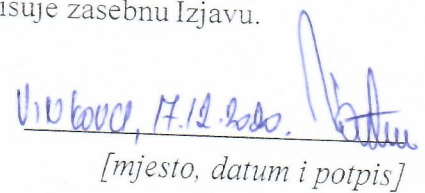 isuje zasebnu Izjavu.
Vinkovci, 17.12.2020.
[mjesto, datum i potpis]